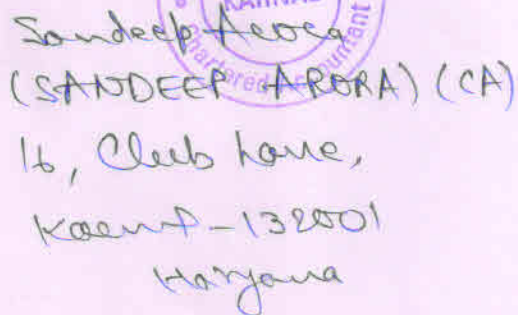 KARNAL
Chartered Accountant
Sandeep Arora
(SANDEEP ARORA) (CA)
16, Club Lane,
Karnal-132001
Haryana